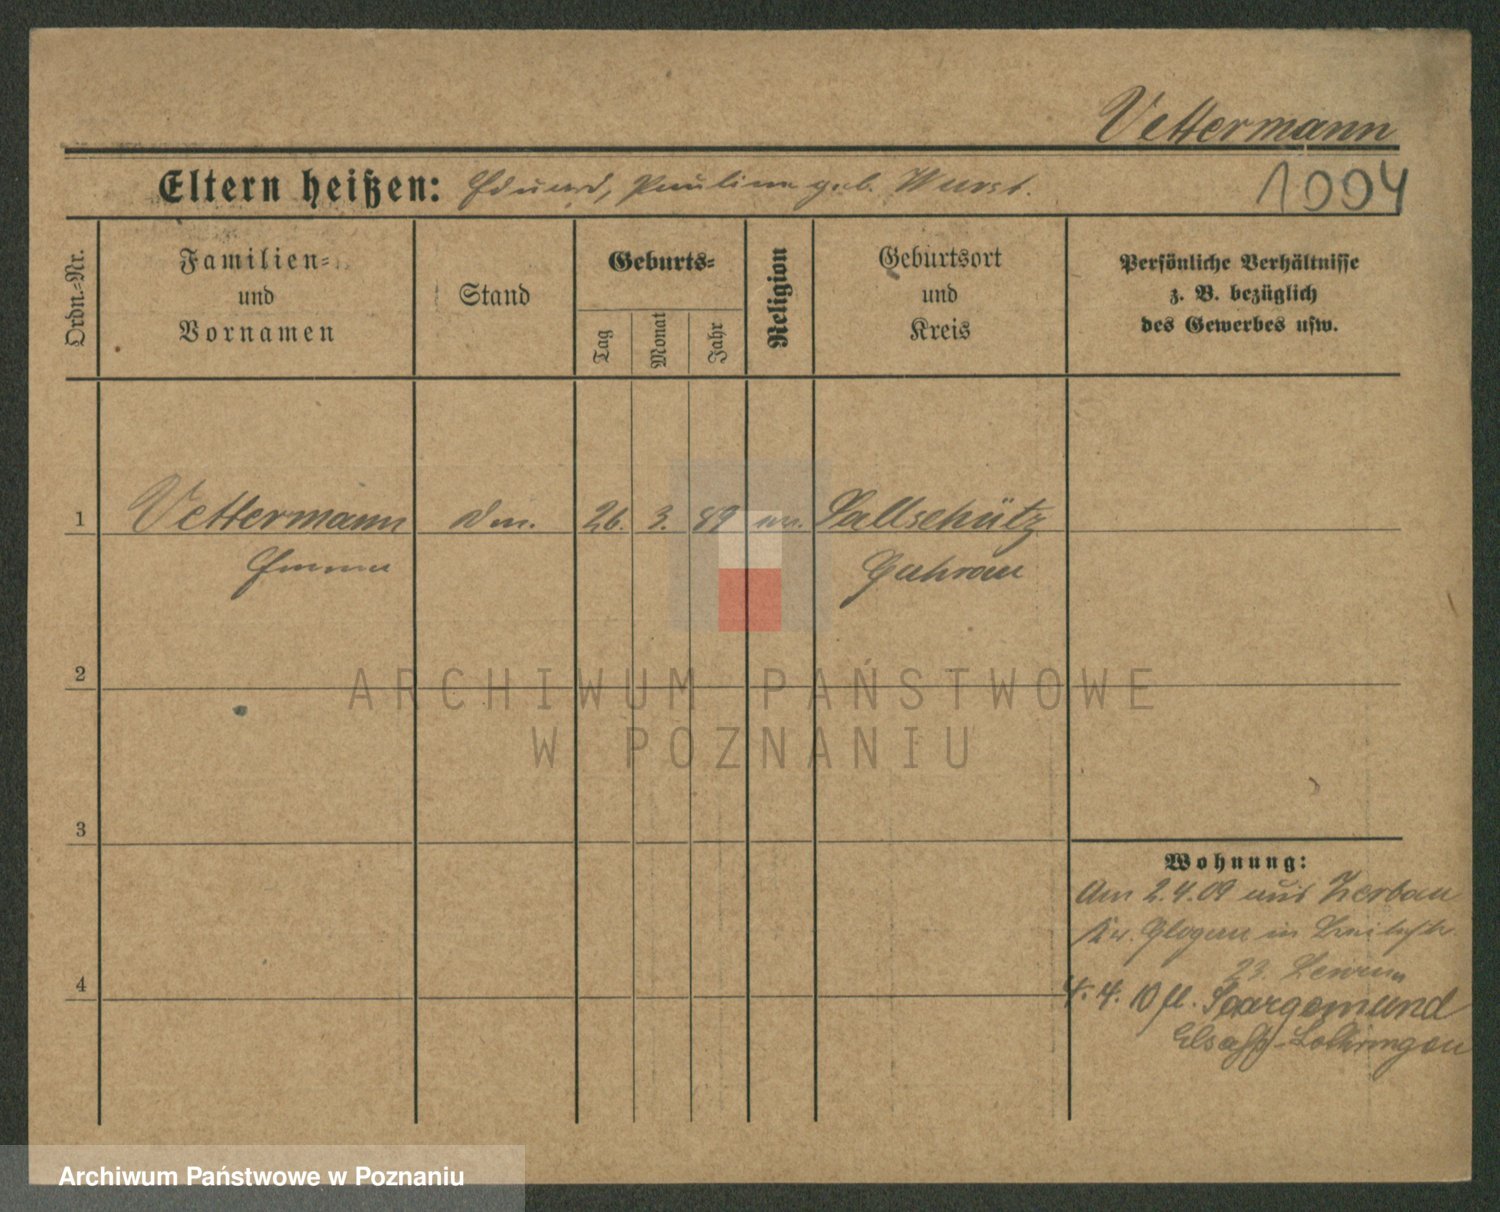 Vettermann
Eltern heißen: Eduard, Pauline geb. Wurst.
1004
Ordn.-Nr.
Familien-
und
Vornamen
Stand
Geburts-
Tag
Monat
Jahr
Religion
Geburtsort
und
Kreis
Persönliche Verhältnisse
z. B. bezüglich
des Gewerbes usw.
1 Vettermann 26. 3. 89 Sallschütz
Emma Guhrau
2
3
4
Wohnung:
Am 2.4.09 aus Zerbau
Kr. Glogau in
23.
4. 4. 10 fl. Saargemünd
Elsaß-Lothringen
ARCHIWUM PAŃSTWOWE
W POZNANIU
Archiwum Państwowe w Poznaniu